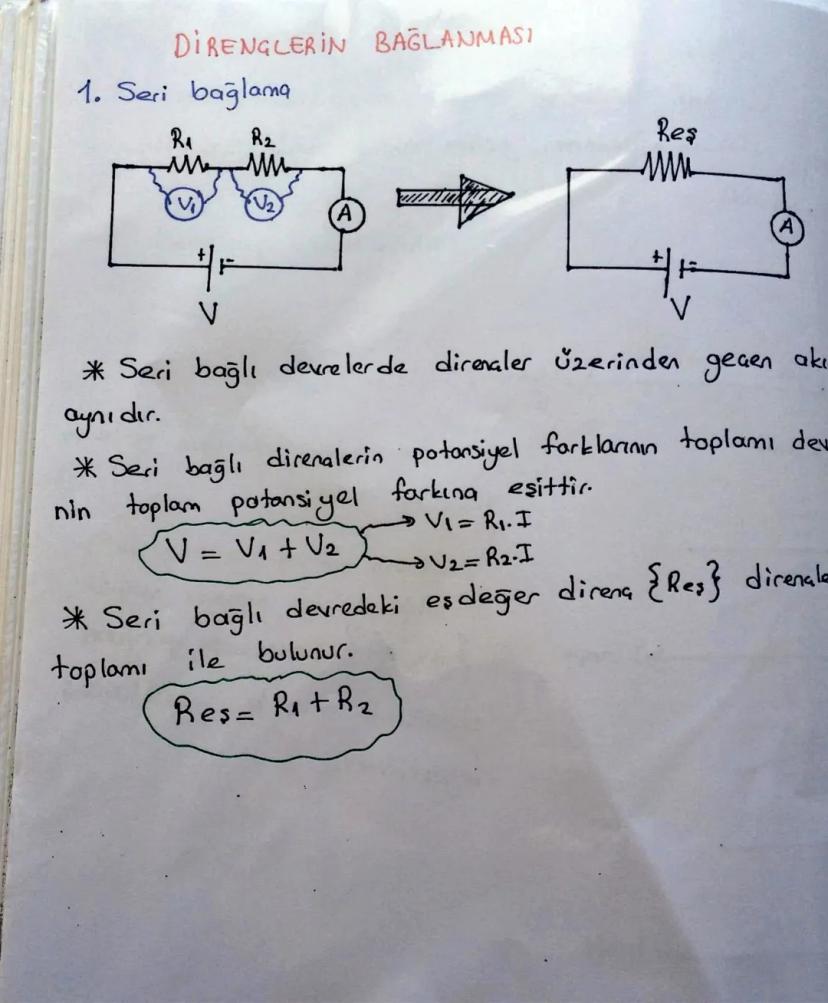 DİRENÇLERİN BAĞLANMASI
1. Seri bağlama
R1 R2 Reş
V1 V2 A A
+ - + -
V V
* Seri bağlı devrelerde dirençler üzerinden geçen akı
aynıdır.
* Seri bağlı dirençlerin potansiyel farklarının toplamı dev
nin toplam potansiyel farkına eşittir.
V = V1 + V2 → V1 = R1.I
→ V2 = R2.I
* Seri bağlı devredeki eşdeğer direnç {Reş} dirençle
toplamı ile bulunur.
Reş = R1 + R2